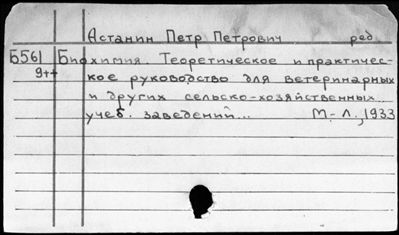 Астанин Петр Петрович ред.
Б561 Биохимия. Теоретическое и практичес-
9++ кое руководство для ветеринарных
и других сельско-хозяйственных
учеб. заведений... М.-Л., 1933